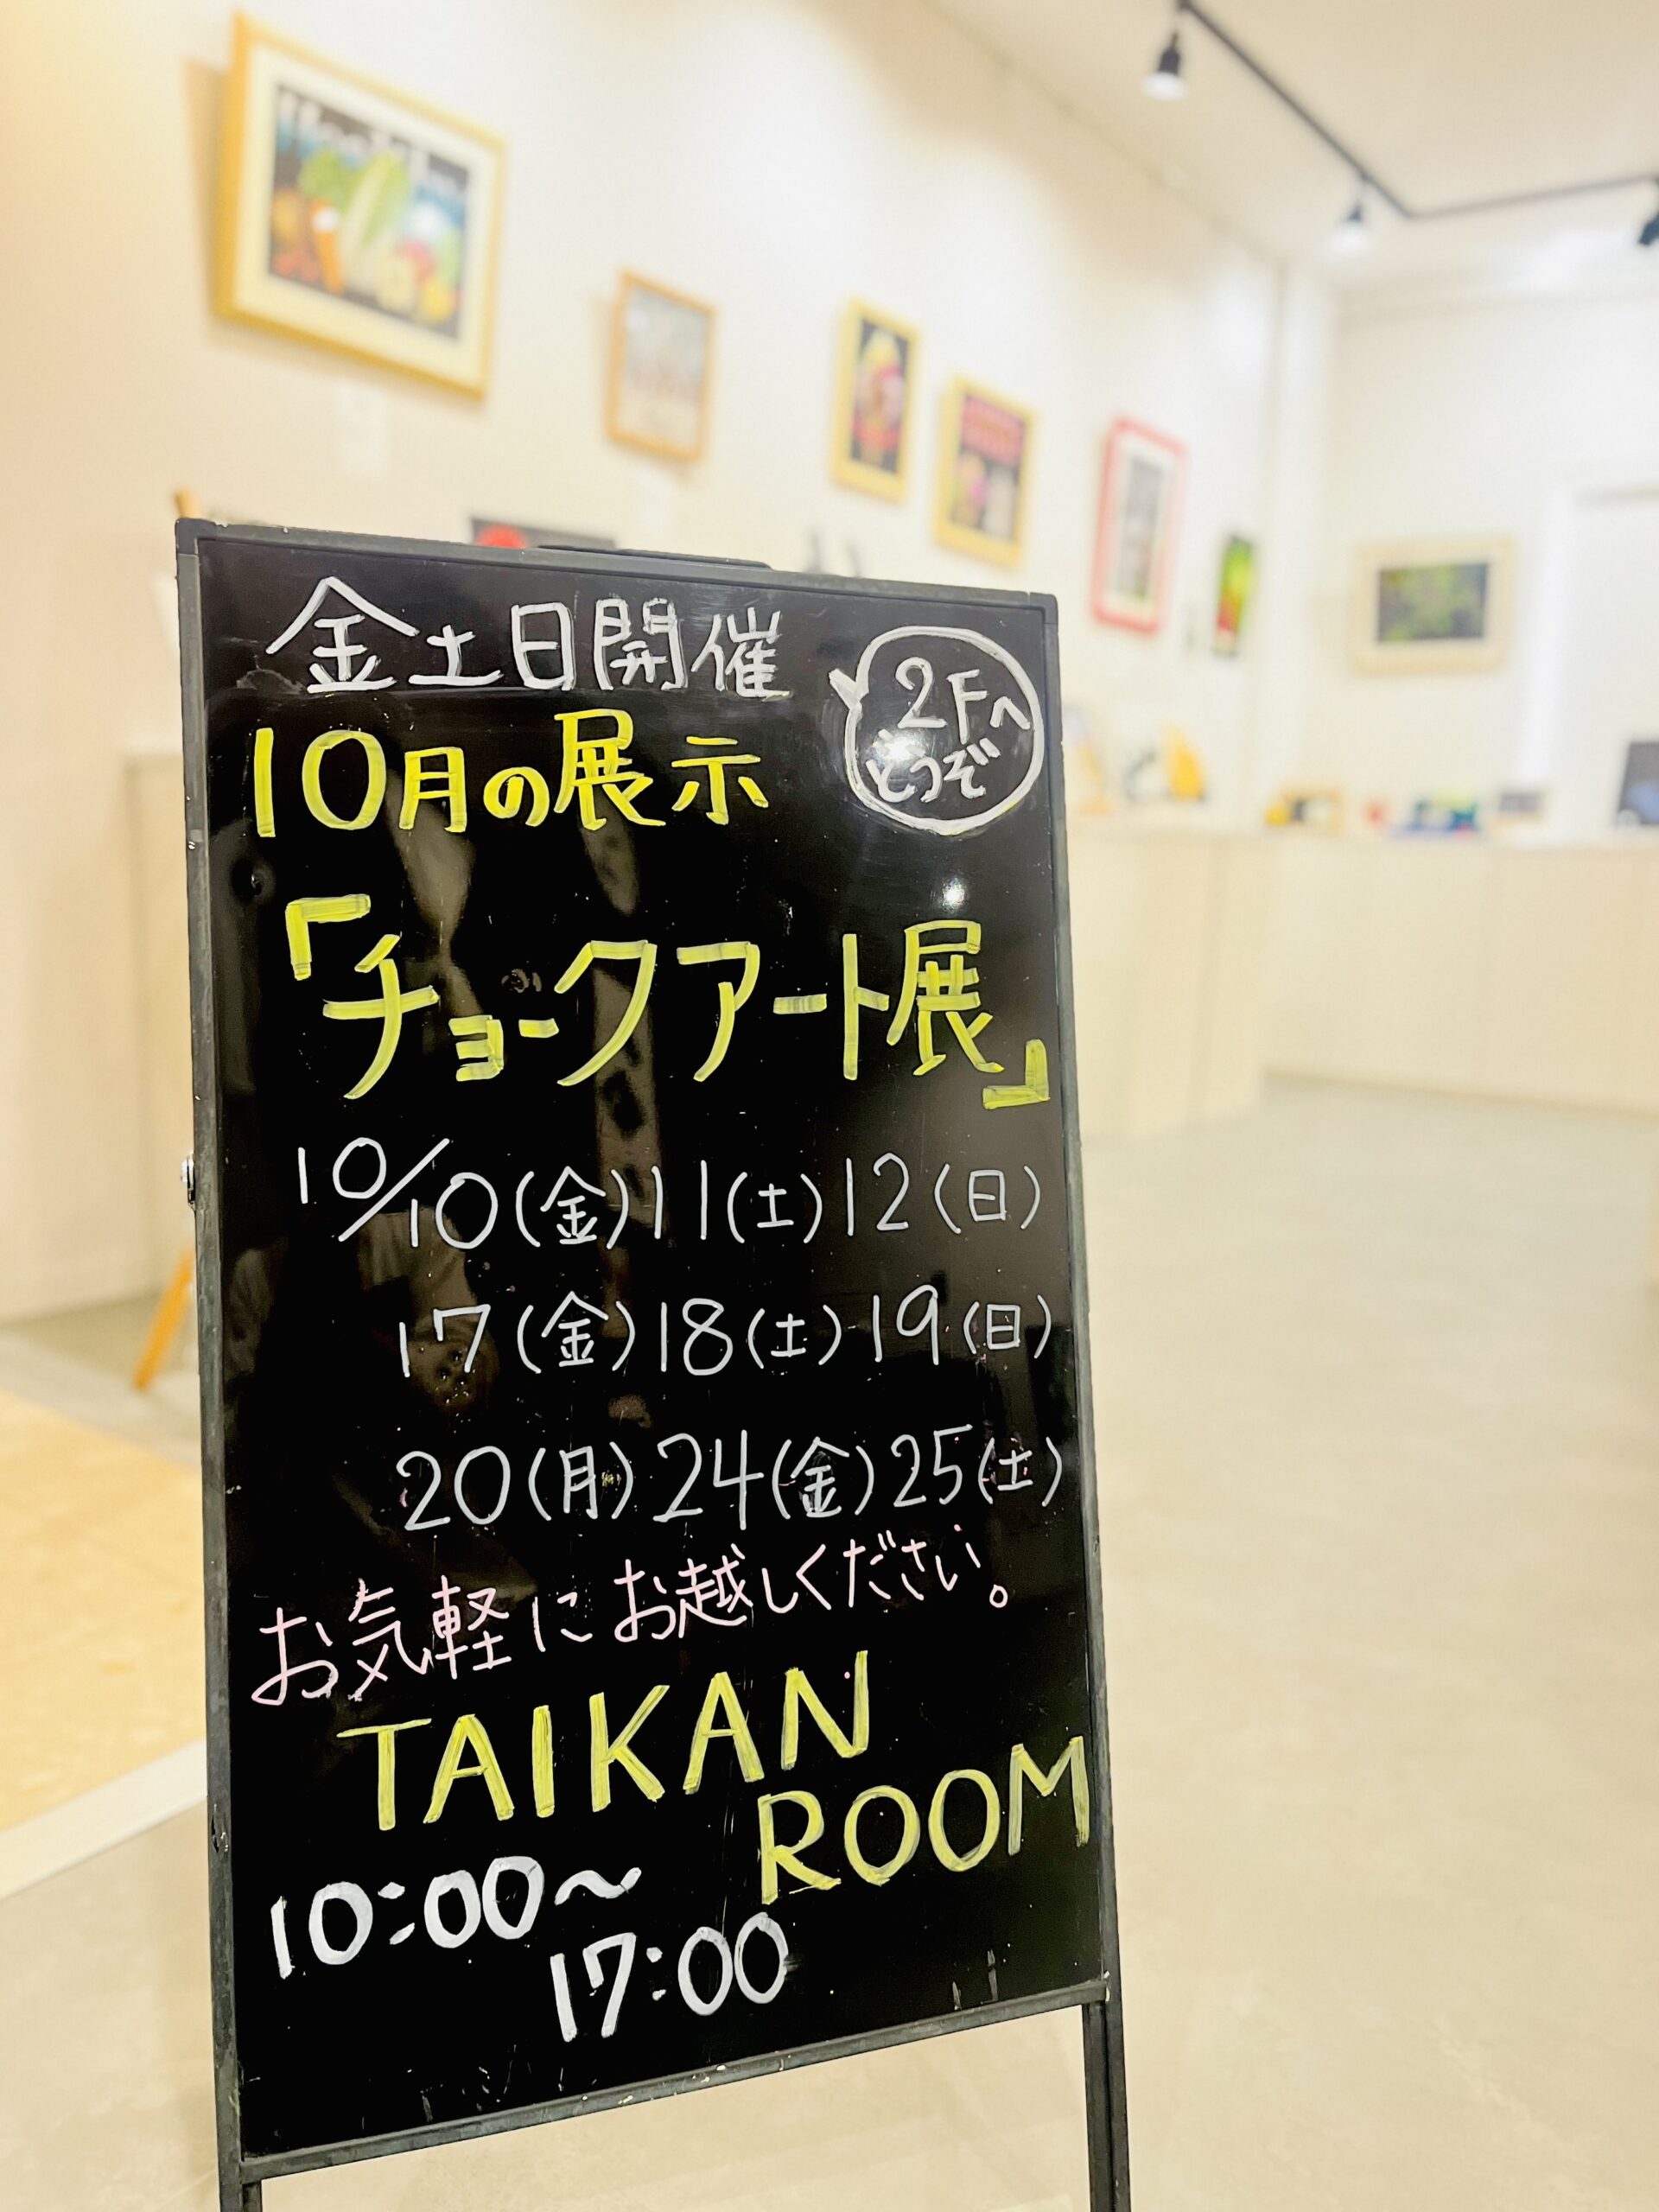 金土日開催
2Fへ
どうぞ
10月の展示
「チョークアート展」
10/10(金)11(土)12(日)
17(金)18(土)19(日)
20(月)24(金)25(土)
お気軽にお越しください。
TAIKAN
ROOM
10:00〜
17:00